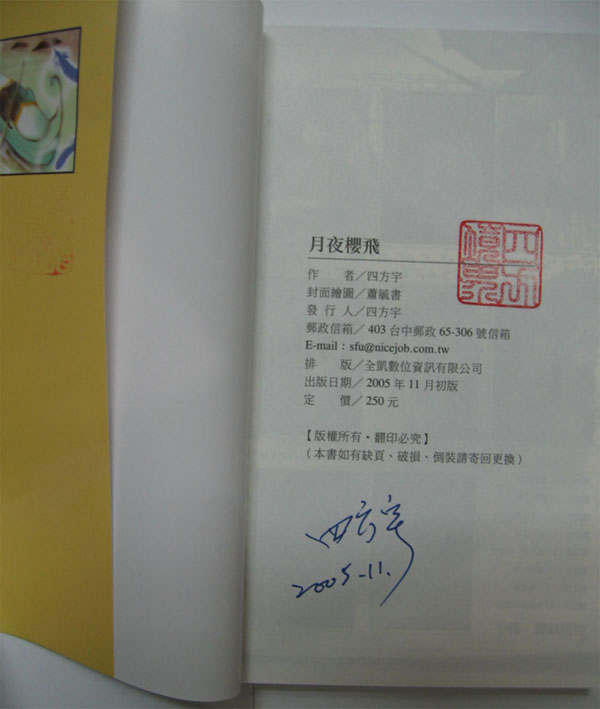 月夜櫻飛
作　　者／四方宇
封面繪圖／蕭毓書
發 行 人／四方宇
郵政信箱／403 台中郵政 65-306 號信箱
E-mail：sfu@nicejob.com.tw
排　　版／全凱數位資訊有限公司
出版日期／2005 年 11 月初版
定　　價／250 元
【版權所有・翻印必究】
（本書如有缺頁、破損、倒裝請寄回更換）
四方宇
2005-11.